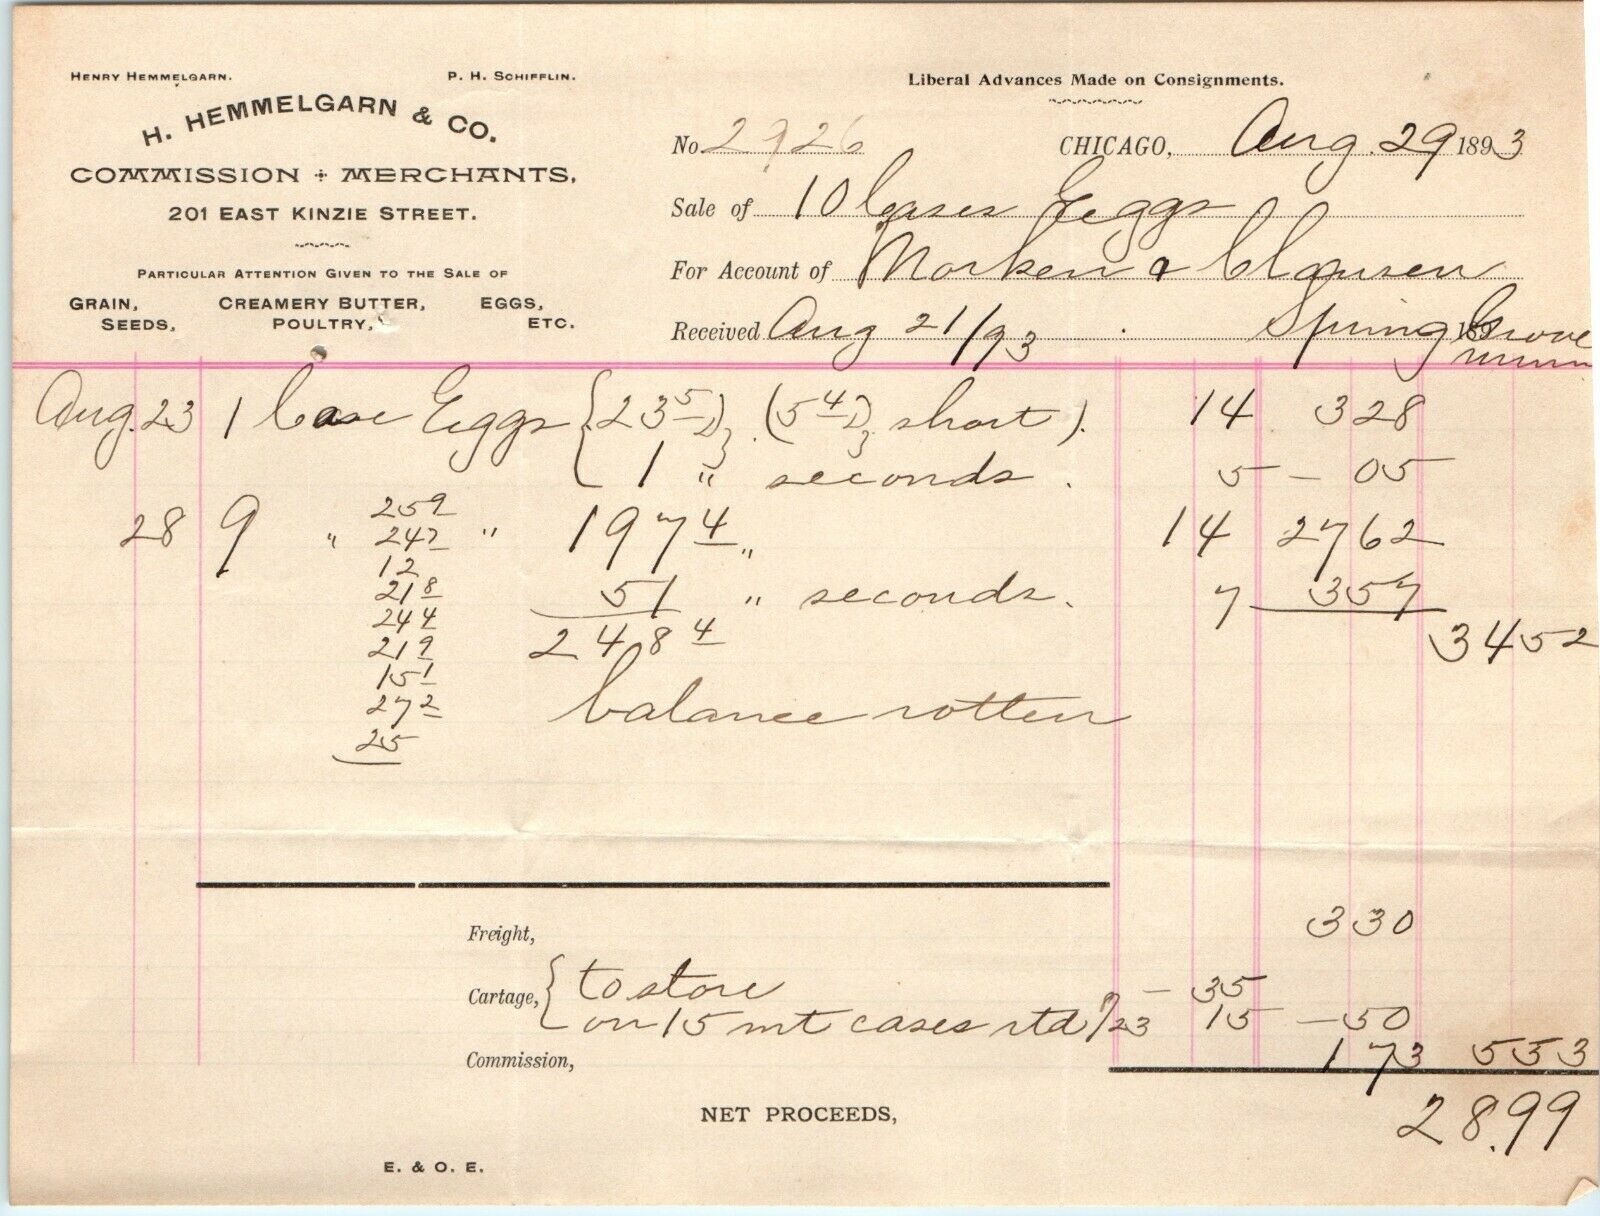 HENRY HEMMELGARN. P. H. SCHIFFLIN.
H. HEMMELGARN & CO.
COMMISSION + MERCHANTS,
201 EAST KINZIE STREET.
PARTICULAR ATTENTION GIVEN TO THE SALE OF
GRAIN, CREAMERY BUTTER, EGGS,
SEEDS, POULTRY, ETC.
Liberal Advances Made on Consignments.
No 2926 CHICAGO, Aug. 29 1893
Sale of 10 Cases Eggs
For Account of Morken & Clausen
Received Aug 21/93 189 Spring Grove
Minn
Aug. 23 1 Case Eggs { 23 5/D. (5 4/D. short). 14 328
1 " seconds. 5 - 05
28 9 " 25 9 " 197 4 " 14 2762
24 7
12
21 8 51 " seconds. 7 357
24 4 248 4 3452
21 9
15 1
27 2 balance rotten
25
Freight, 330
Cartage, { to store - 35
on 15 mt cases rtd 8/23 15 - 50
Commission, 173 553
NET PROCEEDS, 28.99
E. & O. E.